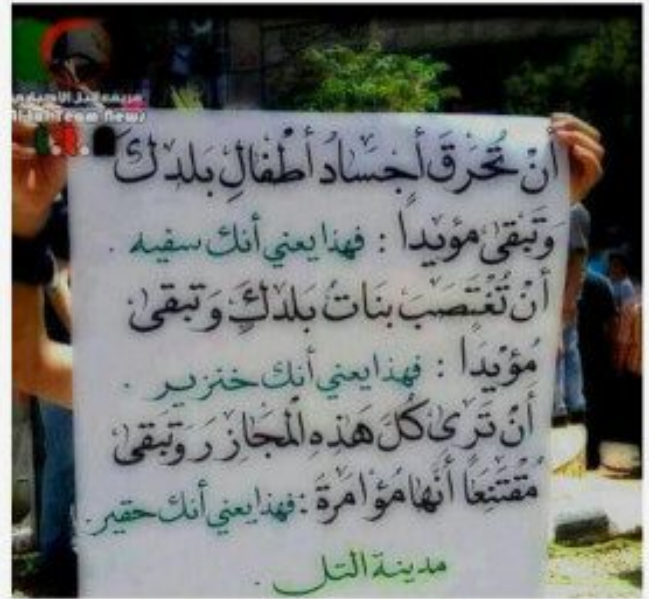 فريق التل الاخباري
Al-Tal Team News
أنْ تُحْرَقَ أجسَادُ أطْفَالِ بَلدِكَ
وَتبقىٰ مؤيداً : فهذا يعني أنك سفيه .
أنْ تُغْتصَبَ بنَاتُ بَلدَكَ وَتبقىٰ
مُؤيّدَاً : فهذا يعني أنك خنزير .
أنْ تَرىٰ كُلَّ هَذِهِ المَجَازِرَ وَتبَقىٰ
مُقتَنِعَاً أنَّها مُؤامَرة : فهذا يعني أنك حقير .
مدينة التل .